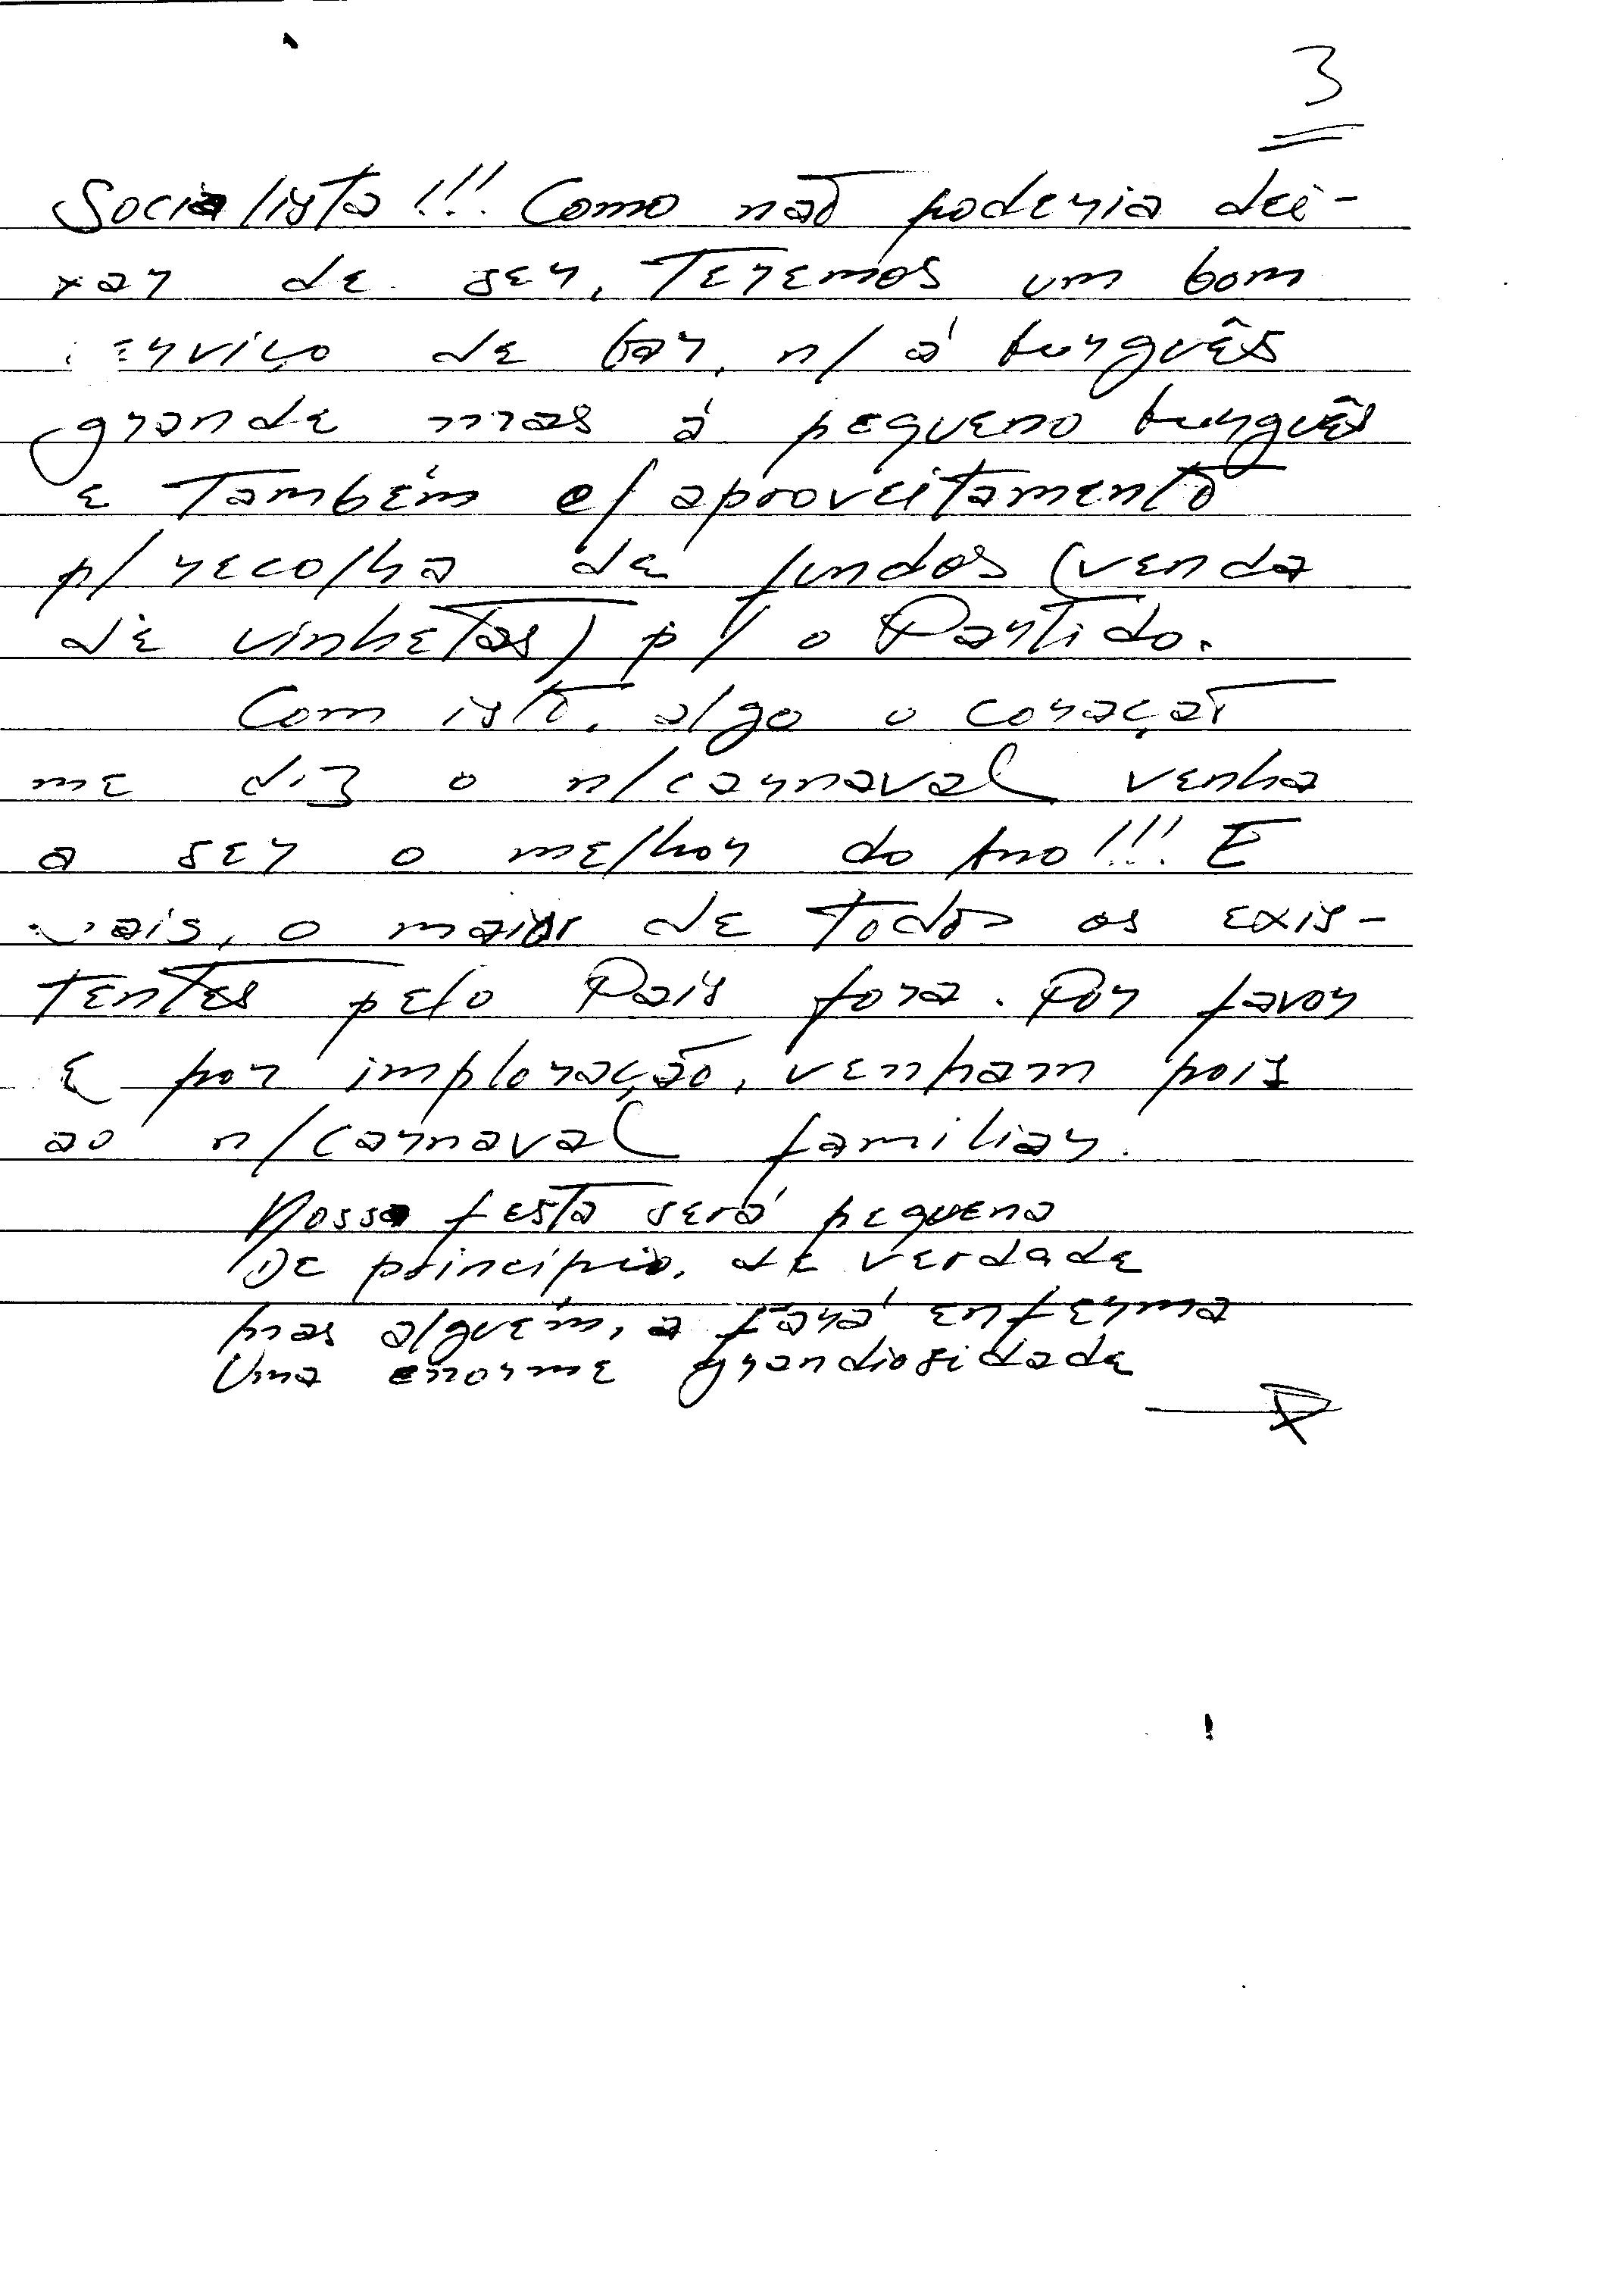 3
Socialista!!! Como não poderia dei-
xar de ser, Teremos um bom
serviço de bar, n/ à burguês
grande mas à pequeno burguês
e Também c/ aproveitamento
p/ recolha de fundos (venda
de vinhetas) p/ o Partido.
Com isto, algo o coração
me diz o n/carnaval venha
a ser o melhor do Ano!!! E
mais, o maior de Todos os exis-
Tentes pelo País fora. Por favor
E por imploração, venham pois
ao n/carnaval familiar.
Nossa festa será pequena
De princípio, de verdade
mas alguém, a fará enferma
Uma enorme grandiosidade